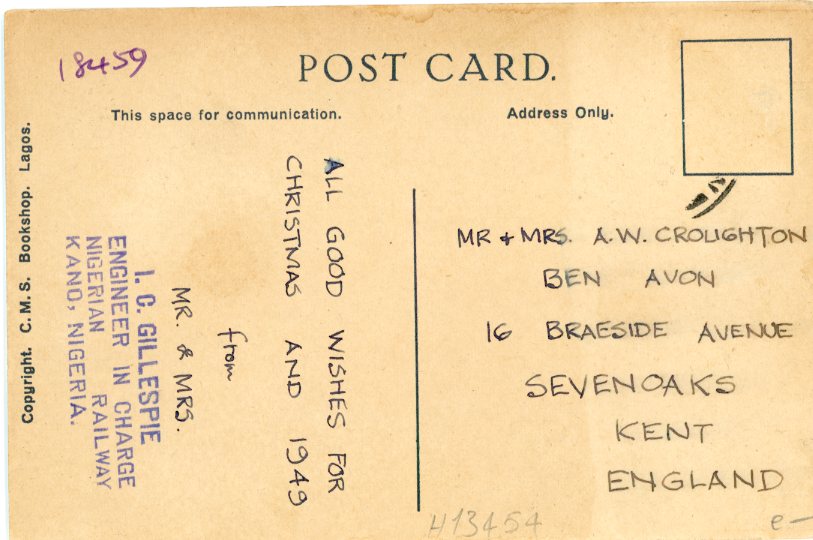 18459
POST CARD.
This space for communication.
Address Only.
Copyright. C.M.S. Bookshop. Lagos.
ALL GOOD WISHES FOR
CHRISTMAS AND 1949
from
MR. & MRS.
I. C. GILLESPIE
ENGINEER IN CHARGE
NIGERIAN RAILWAY
KANO, NIGERIA.
MR & MRS. A.W. CROUGHTON
BEN AVON
16 BRAESIDE AVENUE
SEVENOAKS
KENT
ENGLAND
413454
e—